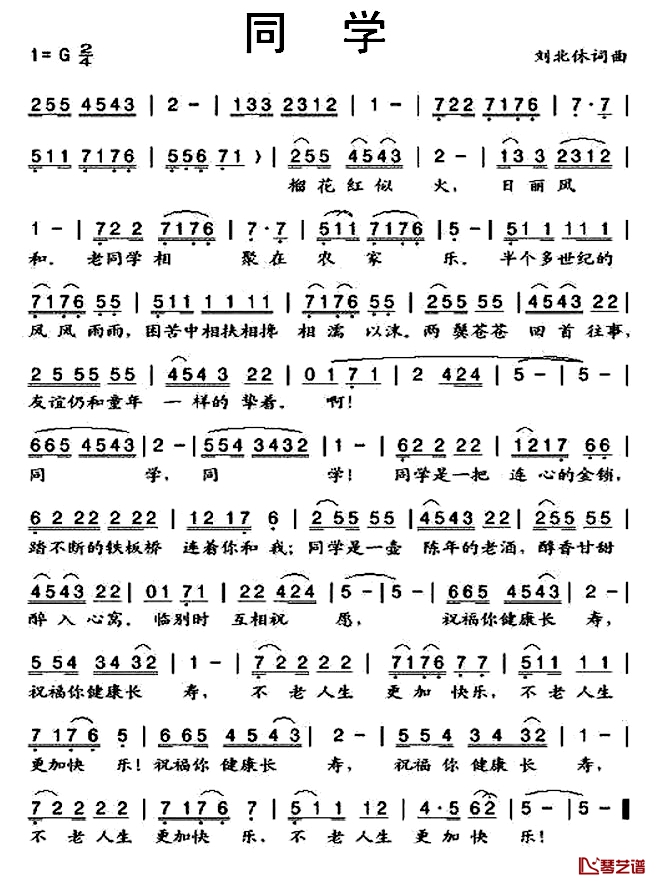 同 学
1= G 2/4 刘北休词曲
255 4543 | 2 - | 133 2312 | 1 - | 722 7176 | 7 · 7 |
511 7176 | 556 71 ) | 255 4543 | 2 - | 13 3 2312 |
榴花红似 火，日丽风
1 - | 72 2 7176 | 7 · 7 | 511 7176 | 5 - | 51 1 11 |
和。老同学相 聚在农家 乐。半个多世纪的
7176 55 | 511 1 1 11 | 7176 55 | 255 55 | 4543 22 |
风风雨雨，困苦中相扶相搀 相濡以沫。两鬓苍苍 回首往事，
2 5 55 55 | 454 3 22 | 01 71 | 2 424 | 5 - | 5 - |
友谊仍和童年 一样的挚着。啊！
665 4543 | 2 - | 554 3432 | 1 - | 62 2 22 | 1217 66 |
同 学，同 学！同学是一把 连心的金锁，
6 2 22 2 22 | 12 17 6 | 2 55 55 | 4543 22 | 255 55 |
踏不断的铁板桥 连着你和我；同学是一壶 陈年的老酒，醇香甘甜
4543 22 | 01 71 | 22 424 | 5 - | 5 - | 665 4543 |
醉入心窝。临别时 互相祝 愿， 祝福你健康长 寿，
5 54 34 32 | 1 - | 7 2 2 2 2 | 7176 7 7 | 511 1 1 |
祝福你健康长 寿，不老人生 更加快乐，不老人生
7 176 5 | 6 65 4 54 3 | 2 - | 5 54 3 4 32 | 1 - |
更加快 乐！祝福你 健康长 寿，祝福你 健康长 寿，
7 2 2 2 2 | 7 17 6 7 | 5 1 1 12 | 4 · 5 62 | 5 - | 5 - ‖
不老人生 更加快乐，不老人生 更加快 乐！
琴艺谱